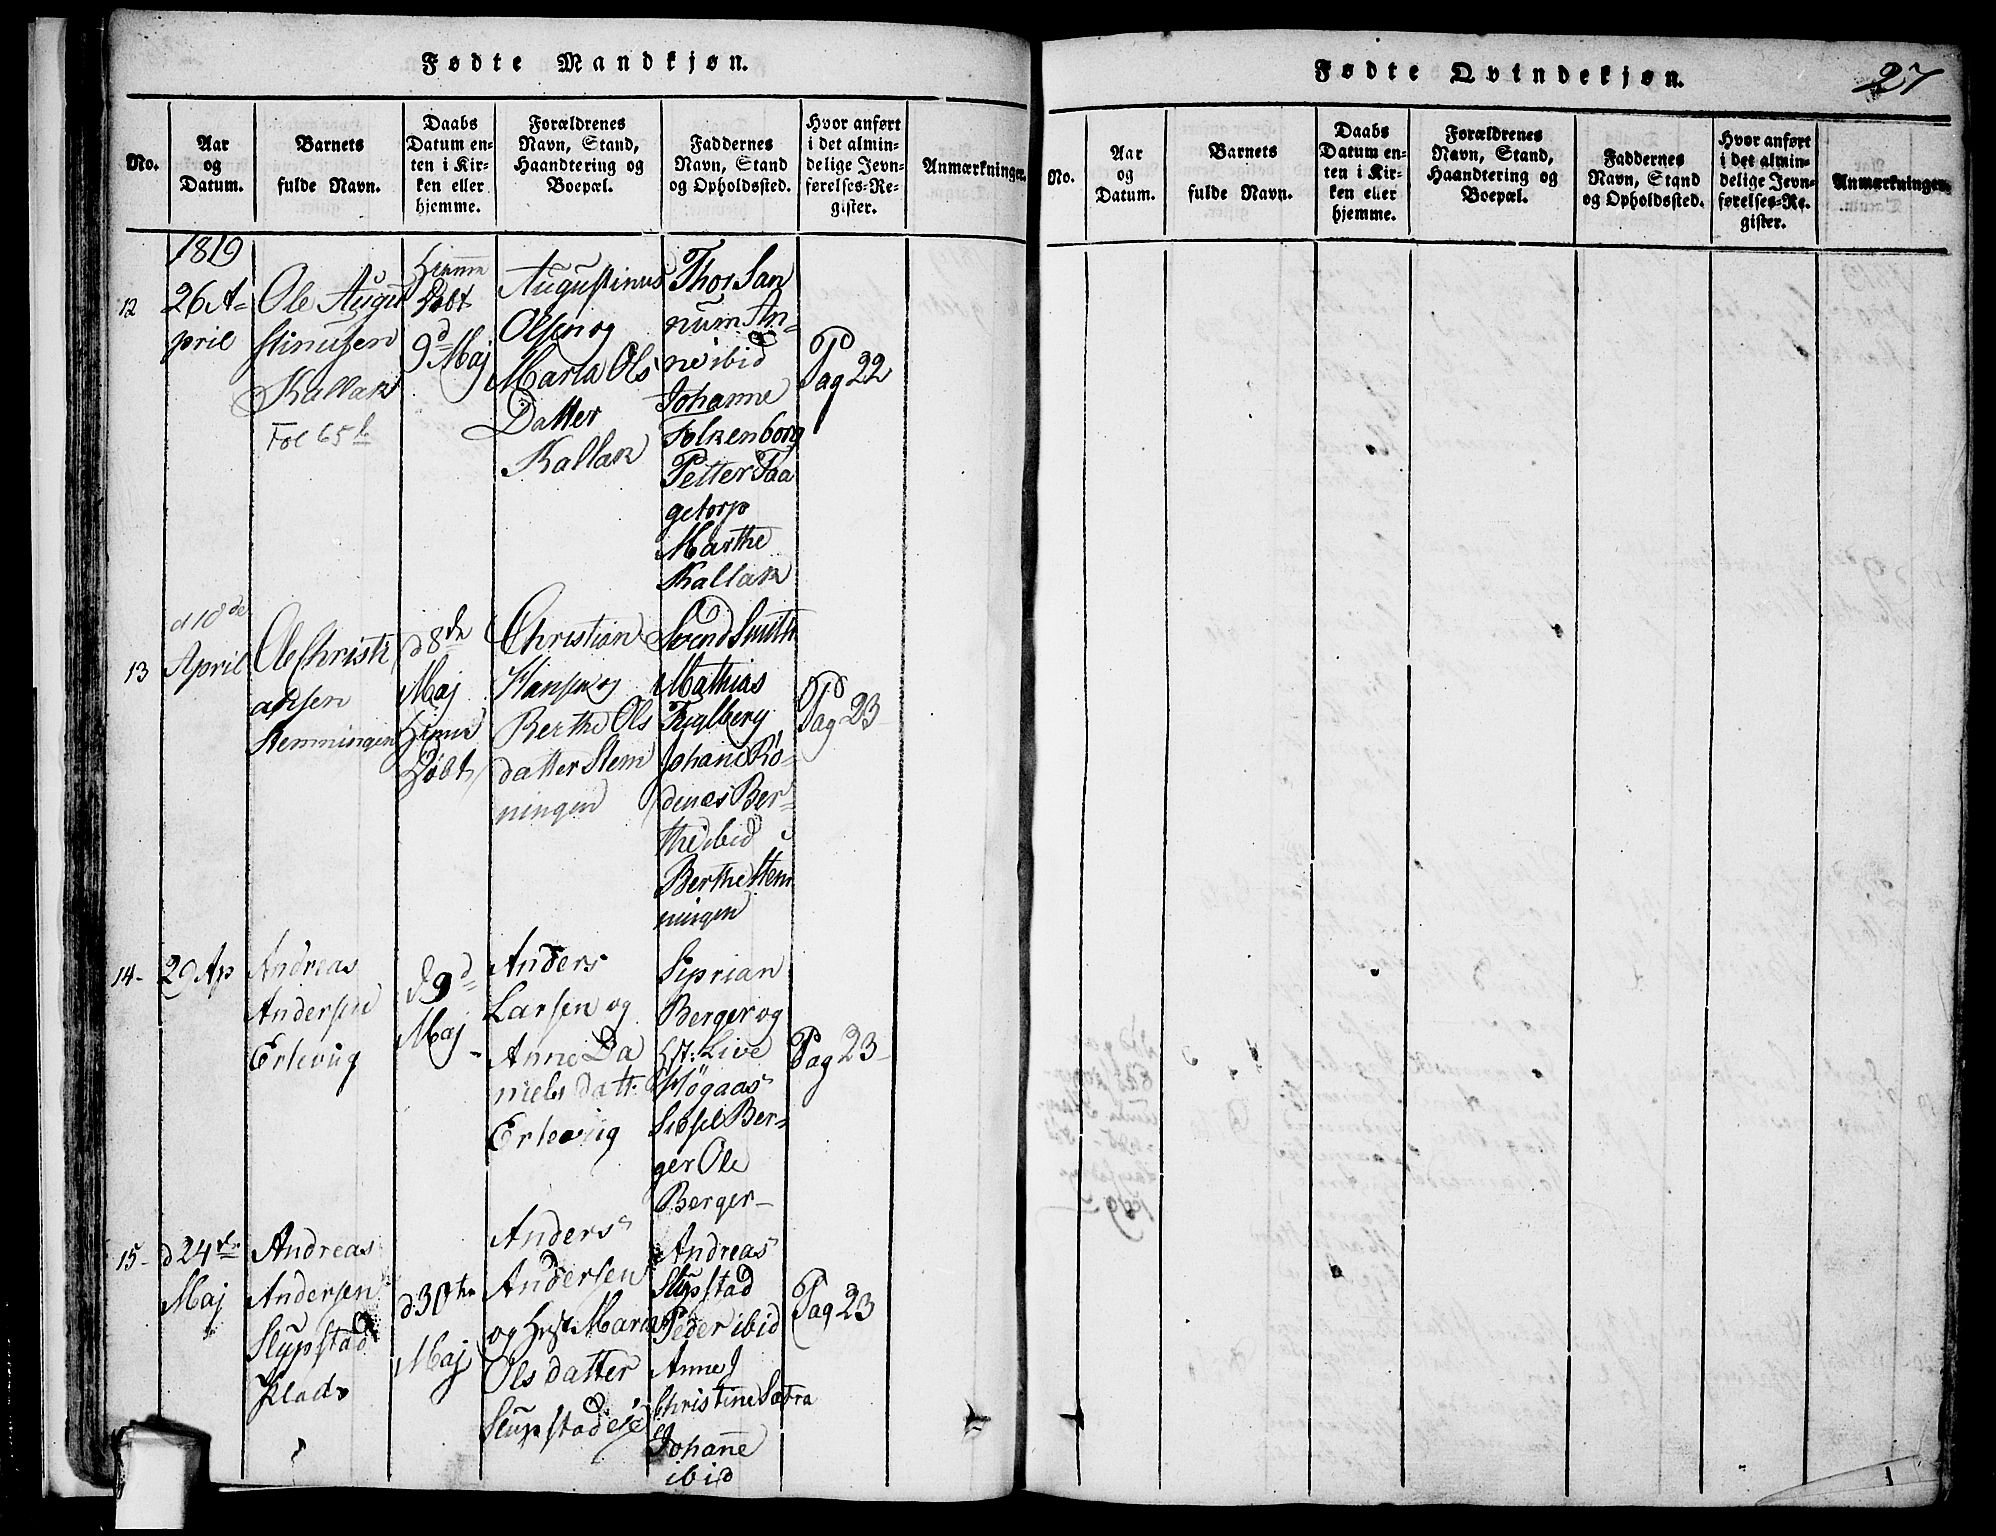 Fødte Mandkjøn.
No.
Aar
og
Datum.
Barnets
fulde Navn.
Daabs
Datum en-
ten i Kir-
ken eller
hjemme.
Forældrenes
Navn, Stand,
Haandtering og
Boepæl.
Faddernes
Navn, Stand
og Opholdssted.
Hvor anført
i det almin-
delige Jevn-
førelses-Re-
gister.
Anmærkninger.
1819
12
26 A-
pril
Ole Augu
stinusen
Kallak
Fol 65
Hjemme
Døbt
9d Maj
Augustinus
Olsen og
Maria Ols
Datter
Kallak
Thor San
num An-
ne ibid
Johanne
Folkenborg
Petter Taa
getorp
Marthe
Kallak
Pag 22
13
d 10de
April
Ole Christi
ansen
Slemmingen
d 8de
Maj
Hjemme
Døbt
Christian
Hansen og
Berthe Ols
datter Slem
ningen
Svend Smith
Mathias
Fuglberg
Johane Rø-
denæs Ber-
the ibid
Berthe Slem
ningen
Pag 23
14-
29 Ap
Andreas
Andersen
Erlevig
d 9d
Maj
Anders
Larsen og
Anne Da
niels datt:
Erlevig
Siprian
Berger og
Hst: Live
Høgaas
Sidsel Ber-
ger Ole
Berger-
Pag 23-
15-
d 24de
Maj
Andreas
Andersen
Slupstad
Plads
d 30te
Maj
Anders
Andersen
og Hust Maria
Olsdatter
Slupstadeje
Andreas
Slupstad
Peder ibid
Anne J
Christine Sætra
Johane
ibid
Pag 23
Fødte Qvindekjøn.
27
No.
Aar
og
Datum.
Barnets
fulde Navn.
Daabs
Datum en-
ten i Kir-
ken eller
hjemme.
Forældrenes
Navn, Stand,
Haandtering og
Boepæl.
Faddernes
Navn, Stand
og Opholdssted.
Hvor anført
i det almin-
delige Jevn-
førelses-Re-
gister.
Anmærkninger.